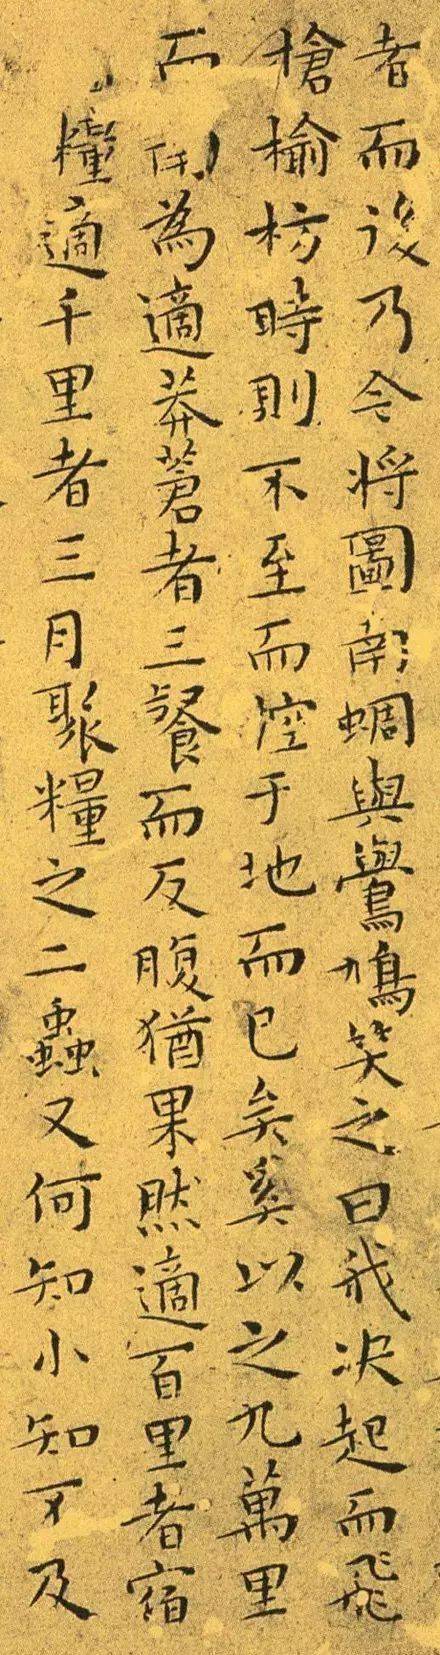 者而後乃今將圖南蜩與鷽鳩笑之曰我決起而飛
槍榆枋時則不至而空于地而已矣奚以之九萬里
而為適莽蒼者三飡而反腹猶果然適百里者宿
糧適千里者三月聚糧之二蟲又何知小知不及